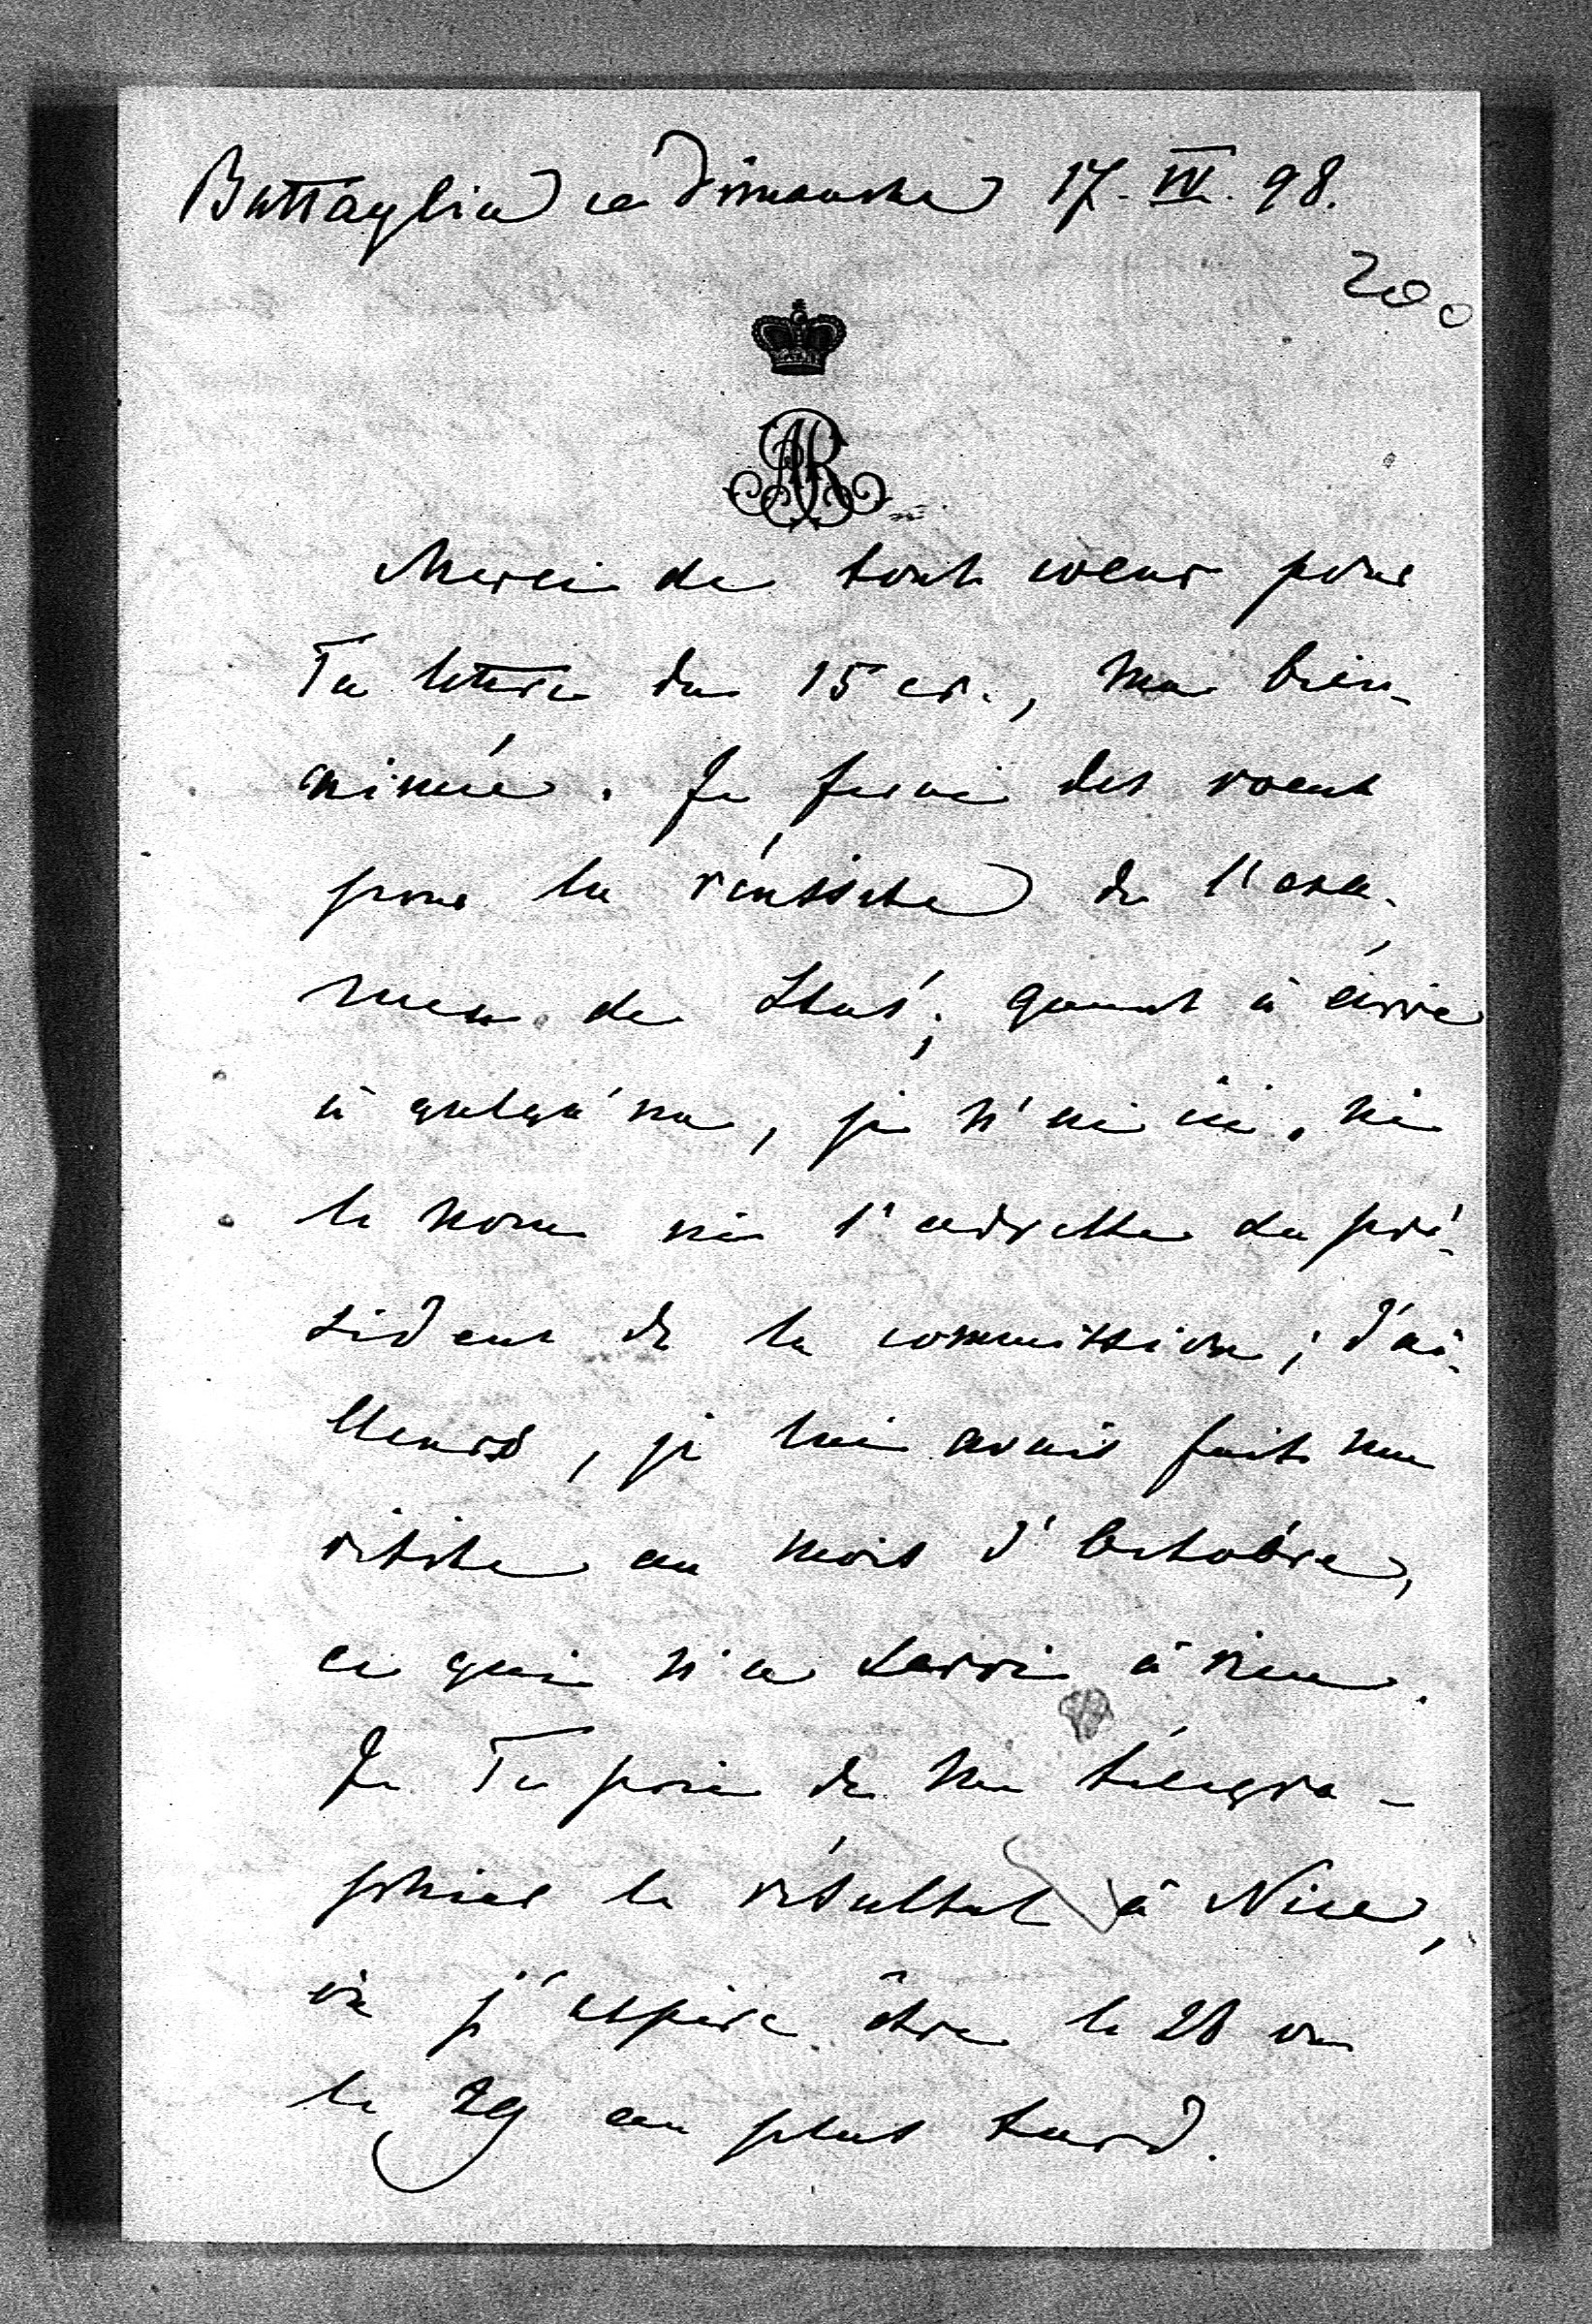 Battaglia ce Dimanche 17. IV. 98.
200
AR
Merci de tout coeur pour
Ta lettre du 15 cr., ma bien-
aimée. Je ferai des voeux
pour la réussite de l'exa-
men de Stas'; quant à écrire
à quelqu'un, je n'ai ici, ni
le nom ni l'adresse du pré-
sident de la commission; d'ai-
lleurs, je lui avais fait une
visite au mois d'Octobre,
ce qui n'a servi à rien.
Je Te prie de me télégra-
phier le résultat à Nice,
où j'espère être le 28 ou
le 29 au plus tard.